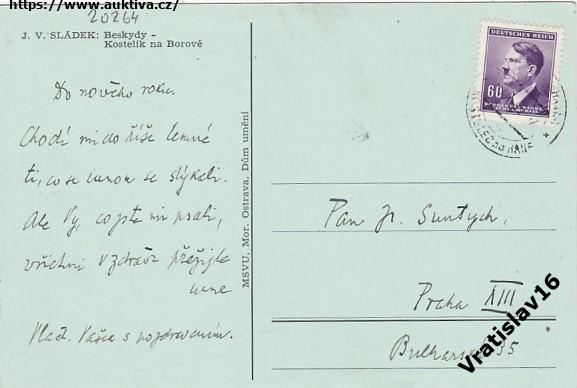 https://www.auktiva.cz/
20264
J. V. SLÁDEK: Beskydy -
Kostelík na Borové
Do nového roku.
Chodí mi do říše temné
ti, co se mnou se stýkali.
Ale Vy, co jste mi psali,
všichni v zdraví přežijte
mne
Vlad. Vašek s pozdravením.
MSVU, Mor. Ostrava, Dům umění
DEUTSCHES REICH
60
Pan Jr. Suntych,
Praha XIII
Bulharská 35
Vratislav16